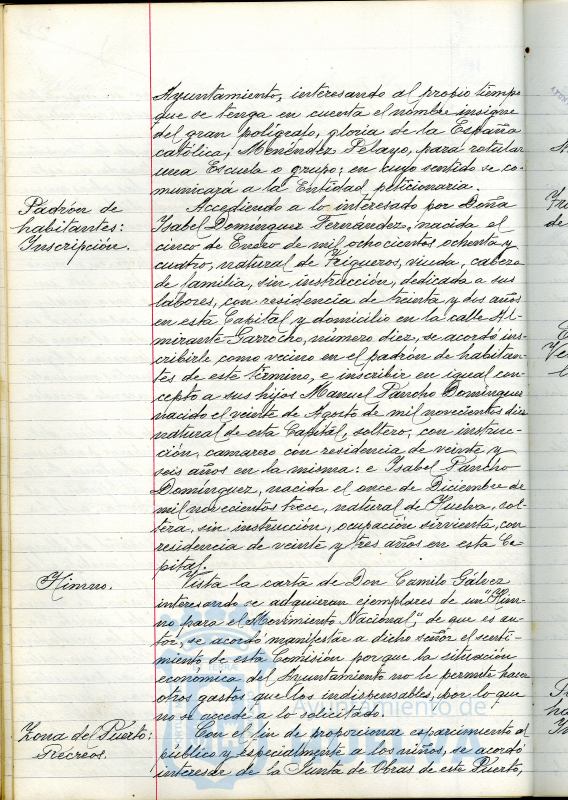 Ayuntamiento, interesando al propio tiempo
que se tenga en cuenta el nombre insigne
del gran polígrafo, gloria de la España
católica, Menéndez Pelayo, para rotular
una Escuela o grupo; en cuyo sentido se co-
municará a la Entidad peticionaria.
Padrón de
habitantes:
Inscripción.
Accediendo a lo interesado por Doña
Isabel Domínguez Fernández, nacida el
cinco de Enero de mil ochocientos ochenta y
cuatro, natural de Trigueros, viuda, cabeza
de familia, sin instrucción, dedicada a sus
labores, con residencia de treinta y dos años
en esta Capital y domicilio en la calle Al-
mirante Garrocho, número diez, se acordó ins-
cribirle como vecino en el padrón de habitan-
tes de este término, e inscribir en igual con-
cepto a sus hijos Manuel Pancho Domínguez
nacido el veinte de Agosto de mil novecientos diez
natural de esta Capital, soltero, con instruc-
ción, camarero con residencia de veinte y
seis años en la misma: e Isabel Pancho
Domínguez, nacida el once de Diciembre de
mil novecientos trece, natural de Huelva, sol-
tera, sin instrucción, ocupación sirvienta, con
residencia de veinte y tres años en esta Ca-
pital.
Himno.
Vista la carta de Don Camilo Gálvez
interesando se adquieran ejemplares de un "Him-
no para el Movimiento Nacional", de que es au-
tor, se acordó manifestar a dicho señor el senti-
miento de esta Comisión porque la situación
económica del Ayuntamiento no le permite hacer
otros gastos que los indispensables, por lo que
no se accede a lo solicitado.
Ayuntamiento de
Zona del Puerto:
Recreos.
Con el fin de proporcionar esparcimiento al
público y especialmente a los niños, se acordó
interesar de la Junta de Obras de este Puerto,